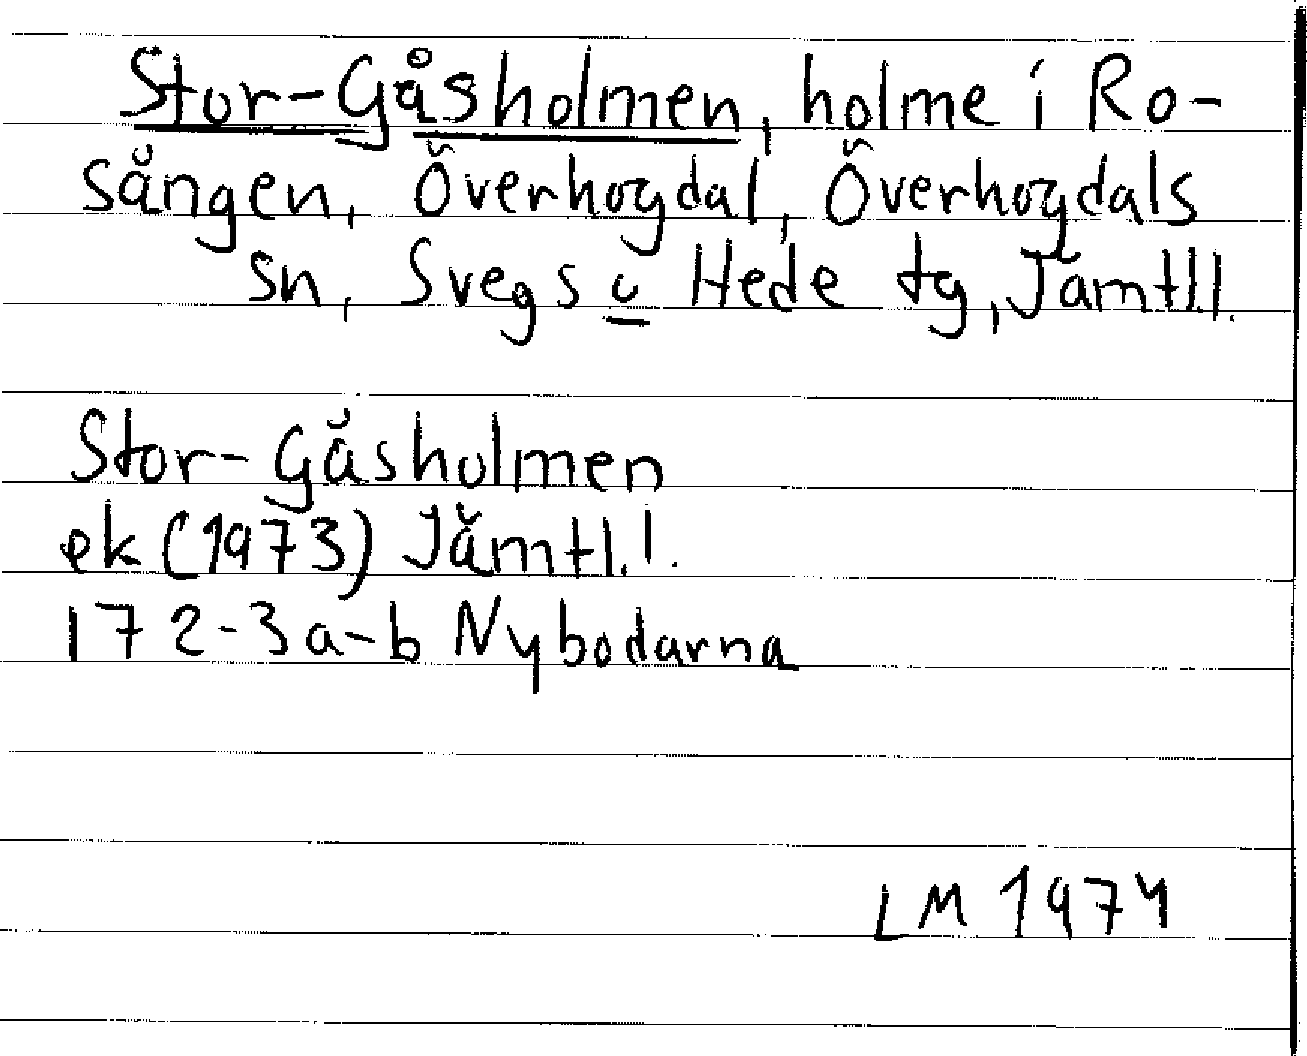 Stor-Gåsholmen, holme i Ro-
sången, Överhogdal, Överhogdals
sn, Svegs o Hede tg, Jämtl.l.
Stor-Gåsholmen
ek (1973) Jämtl.l.
172-3a-b Nybodarna
LM 1974